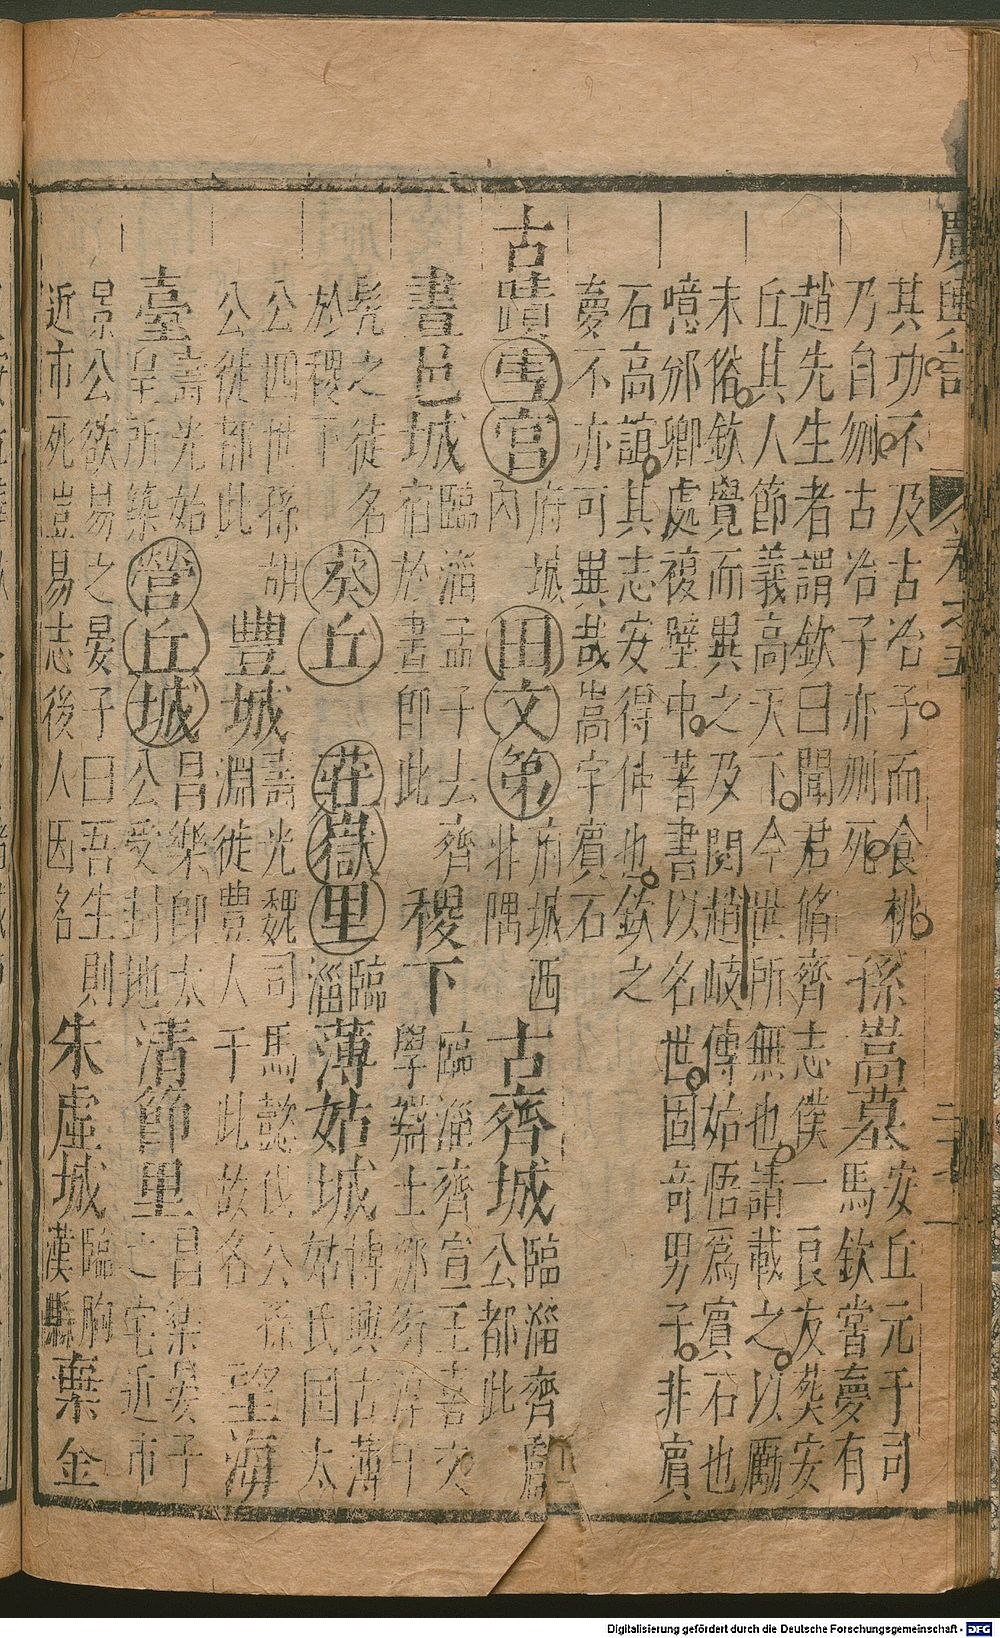 廣輿記
卷之五
其功不及古冶子而食桃
乃自刎古冶子亦刎死
孫嵩墓
安丘元于司
馬欽嘗夢有
趙先生者謂欽曰聞君脩齊志僕一良友葬安
丘其人節義高天下今世所無也請載之以勵
末俗欽覺而異之及閱趙岐傳始悟爲賓石也
噫邠卿處複壁中著書以名世固奇男子非賓
石高誼其志安得伸也欽之
夢不亦可異哉嵩字賓石
古蹟
雪宮
府城
內
田文第
府城西
北隅
古齊城
臨淄齊獻
公都此
晝邑城
臨淄孟子去齊
宿於晝即此
稷下
臨淄齊宣王喜文
學游士鄒衍淳于
髡之徒名
於稷下
葵丘
莊嶽里
臨
淄
薄姑城
博興古薄
姑氏國太
公四世孫胡
公徙都此
豐城
壽光魏司馬懿伐公孫
淵徙豐人于此故名
望海
臺
壽光始
皇所築
營丘城
昌樂即太
公受封地
清節里
昌樂晏子
之宅近市
景公欲易之晏子曰吾生則
近市死豈易志後人因名
朱虛城
臨朐
漢縣
棄金
Digitalisierung gefördert durch die Deutsche Forschungsgemeinschaft - DFG